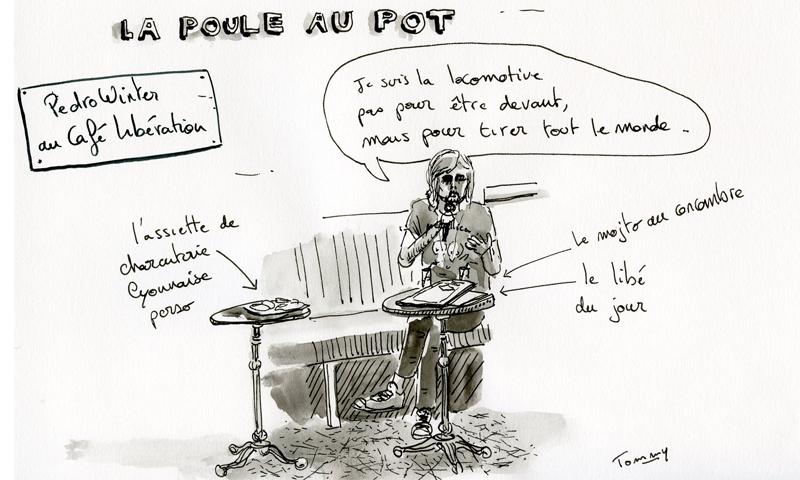 LA POULE AU POT
Pedro Winter
au Café Libération
Je suis la locomotive
pas pour être devant,
mais pour tirer tout le monde.
l'assiette de
charcuterie
Lyonnaise
perso
Le mojito au concombre
le libé
du jour
Tommy